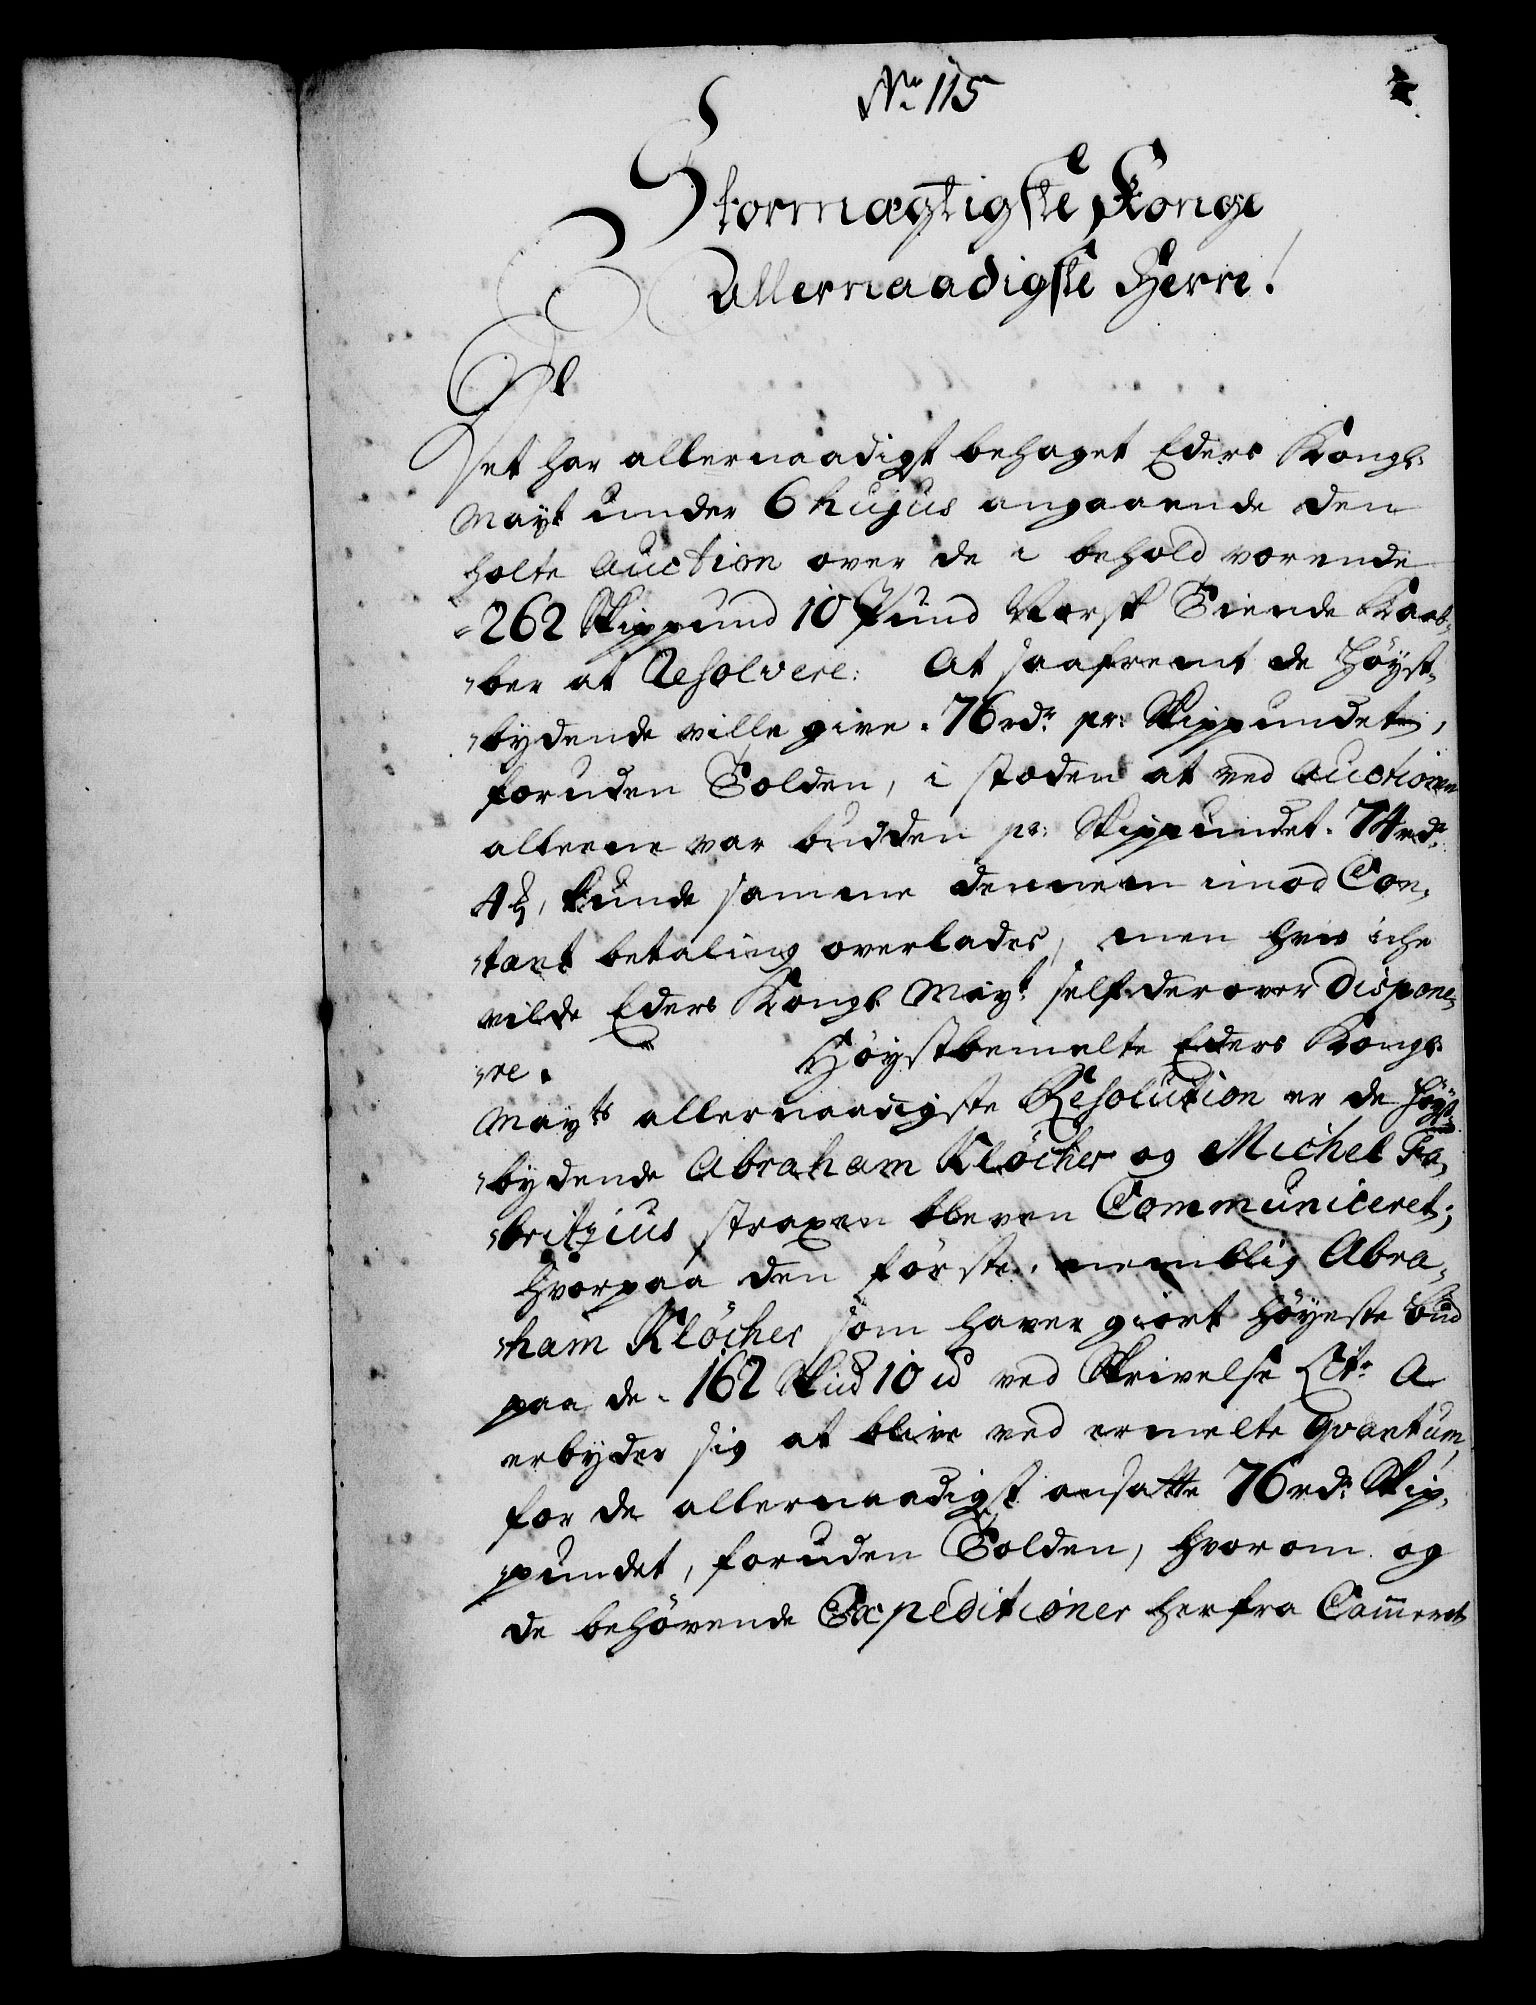 No 115
Stormægtigste Konge
allernaadigste Herre!
Det har allernaadigst behaget Eders Kongl:
Mayt under 6 hujus angaaende den
holte Auction over de i behold værende
262 Skippund 10 Pund Norsk Tiende Kaab-
ber at Resolvere: At saafremt de Höyst-
bydende ville give 76 rdr pr: Skippundet,
foruden Tolden, i stæden at ved Auctionen
alleene var budden pr: Skippundet 74 rdr
4 ß, kunde samme dennem imod Con-
tant betaling overlades, men hvis iche
vilde Eders Kongl Mayt self derover Dispone-
re. Höystbemelte Eders Kongl:
Mayts allernaadigste Resolution er de Höyst-
bydende Abraham Klöcher og Michel Fa-
britzius straxen bleven Communiceret;
Hvorpaa den förste, nemblig Abra-
ham Klöcher som haver giort höyeste bud
paa de 162 Skud 10 ud ved Skrivelse Ltr A
erbyder sig at blive ved ermelte Qvantum,
for de allernaadigst ansatte 76 rdr Skip-
pundet, foruden Tolden, hvorom og
de behövende Expeditioner herfra Cammeret